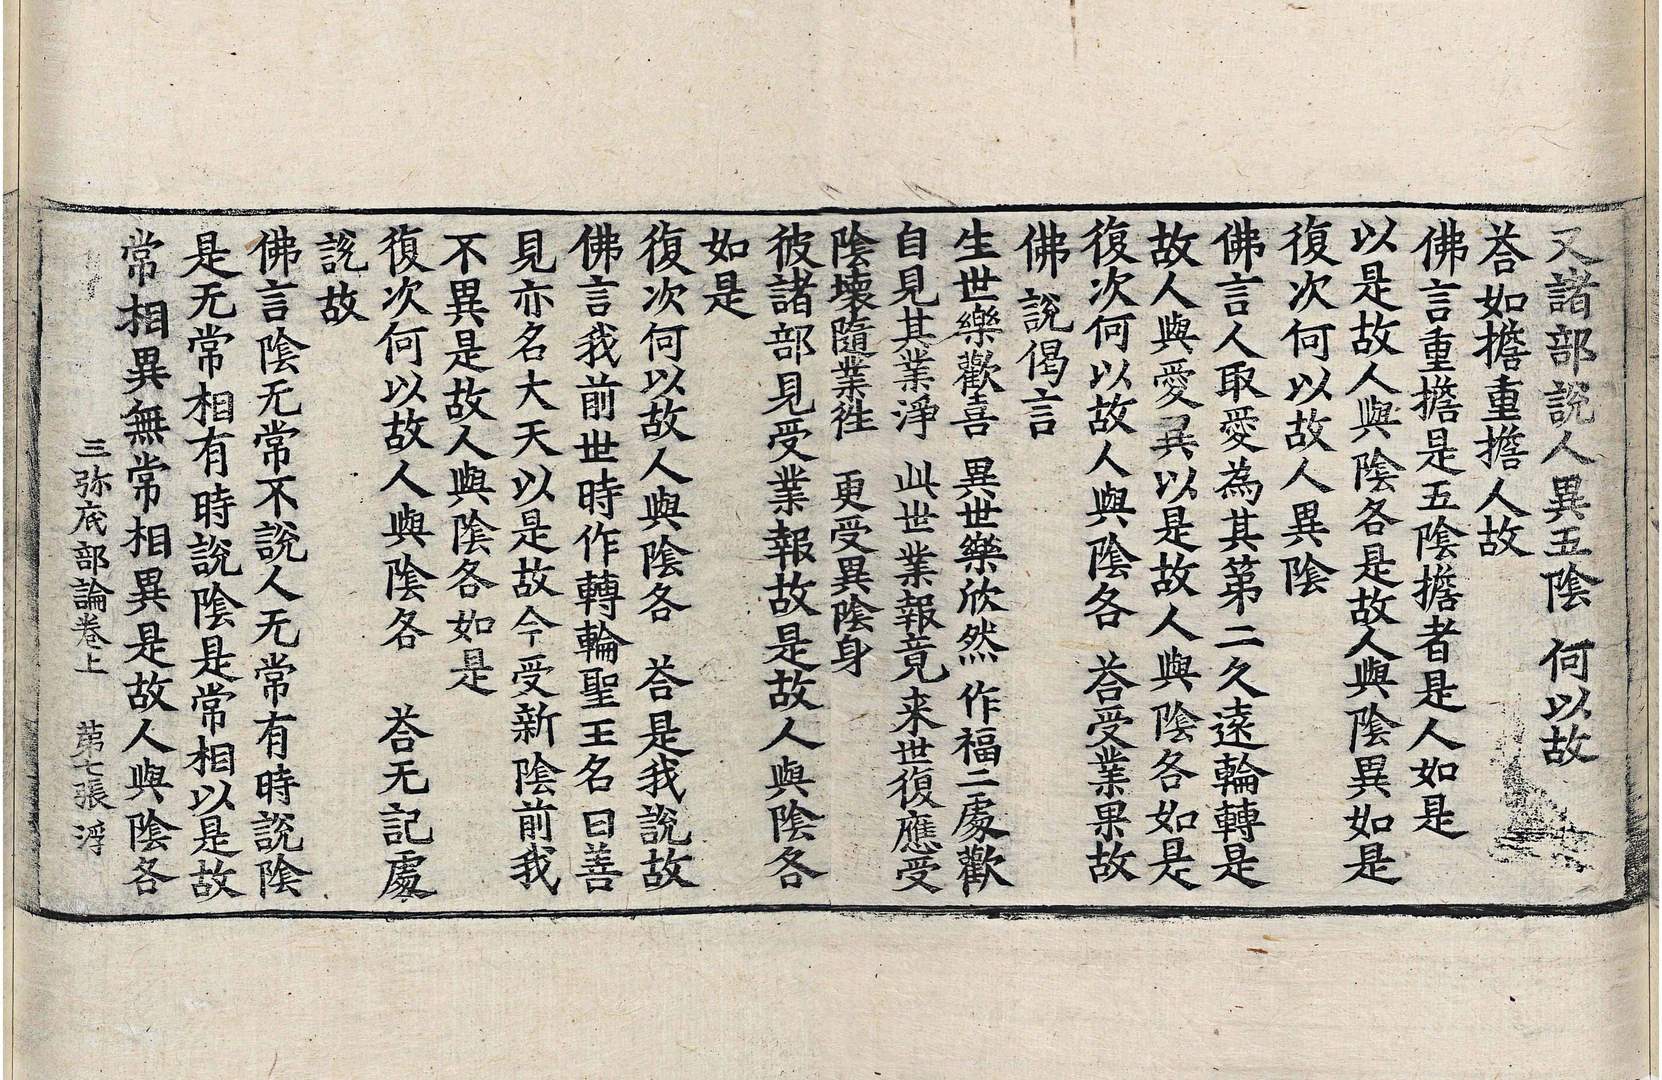 又諸部說人異五陰　何以故
荅如擔重擔人故
佛言重擔是五陰擔者是人如是
以是故人與陰各是故人與陰異如是
復次何以故人異陰
佛言人取愛為其第二久遠輪轉是
故人與愛異以是故人與陰各如是
復次何以故人與陰各　荅受業果故
佛說偈言
生世樂歡喜　異世樂欣然　作福二處歡
自見其業淨　此世業報竟　来世復應受
陰壞隨業徃　更受異陰身
彼諸部見受業報故是故人與陰各
如是
復次何以故人與陰各　荅是我說故
佛言我前世時作轉輪聖王名曰善
見亦名大天以是故今受新陰前我
不異是故人與陰各如是
復次何以故人與陰各　荅无記處
說故
佛言陰无常不說人无常有時說陰
是无常相有時說陰是常相以是故
常相異無常相異是故人與陰各
三弥底部論卷上　第七張　浮